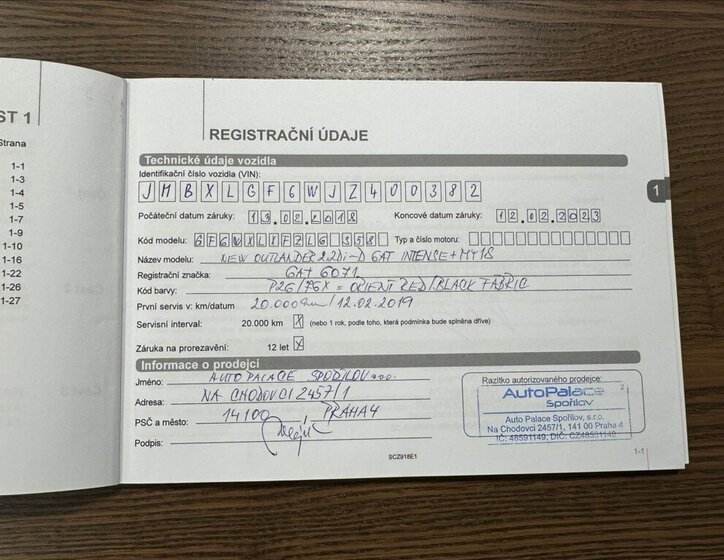 ST 1
Strana
1-1
1-3
1-4
1-5
1-7
1-9
1-10
1-16
1-22
1-26
1-27
REGISTRAČNÍ ÚDAJE
Technické údaje vozidla
Identifikační číslo vozidla (VIN):
JMBXLGF6WJZ400382
Počáteční datum záruky: 13.02.2018 Koncové datum záruky: 12.02.2023
Kód modelu: GF6WXLXFZL6 358 Typ a číslo motoru:
Název modelu: NEW OUTLANDER 2.2Di-D 6AT INTENSE+MY18
Registrační značka: 6AT 6071
Kód barvy: P26/75X = ORIENT RED/BLACK FABRIC
První servis v km/datum 20.000km / 12.02.2019
Servisní interval: 20.000 km X (nebo 1 rok, podle toho, která podmínka bude splněna dříve)
Záruka na prorezavění: 12 let X
Informace o prodejci
Jméno: AUTO PALACE SPOŘILOV s.r.o.
Adresa: NA CHODOVCI 2457/1
PSČ a město: 14100 PRAHA 4
Podpis:
Razítko autorizovaného prodejce:
2
AutoPalace
Spořilov
Auto Palace Spořilov, s.r.o.
Na Chodovci 2457/1, 141 00 Praha 4
IČ: 48591149, DIČ: CZ48591149
SCZ918E1
1-1
1